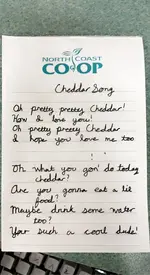 NORTH COAST
CO-OP
Cheddar Song
Oh pretty pretty Cheddar!
How I love you!
Oh pretty pretty Cheddar
I hope you love me too
Oh what you gon' do today
cheddar?
Are you gonna eat a lil
food?
Maybe drink some water
too?
Your such a cool dude!